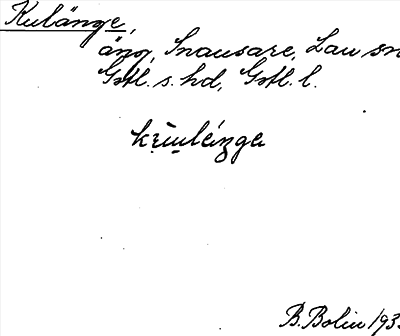 Kulänge,
äng, Snausare, Lau sn
Gotl. s. hd, Gotl. l.
B. Bolin 193